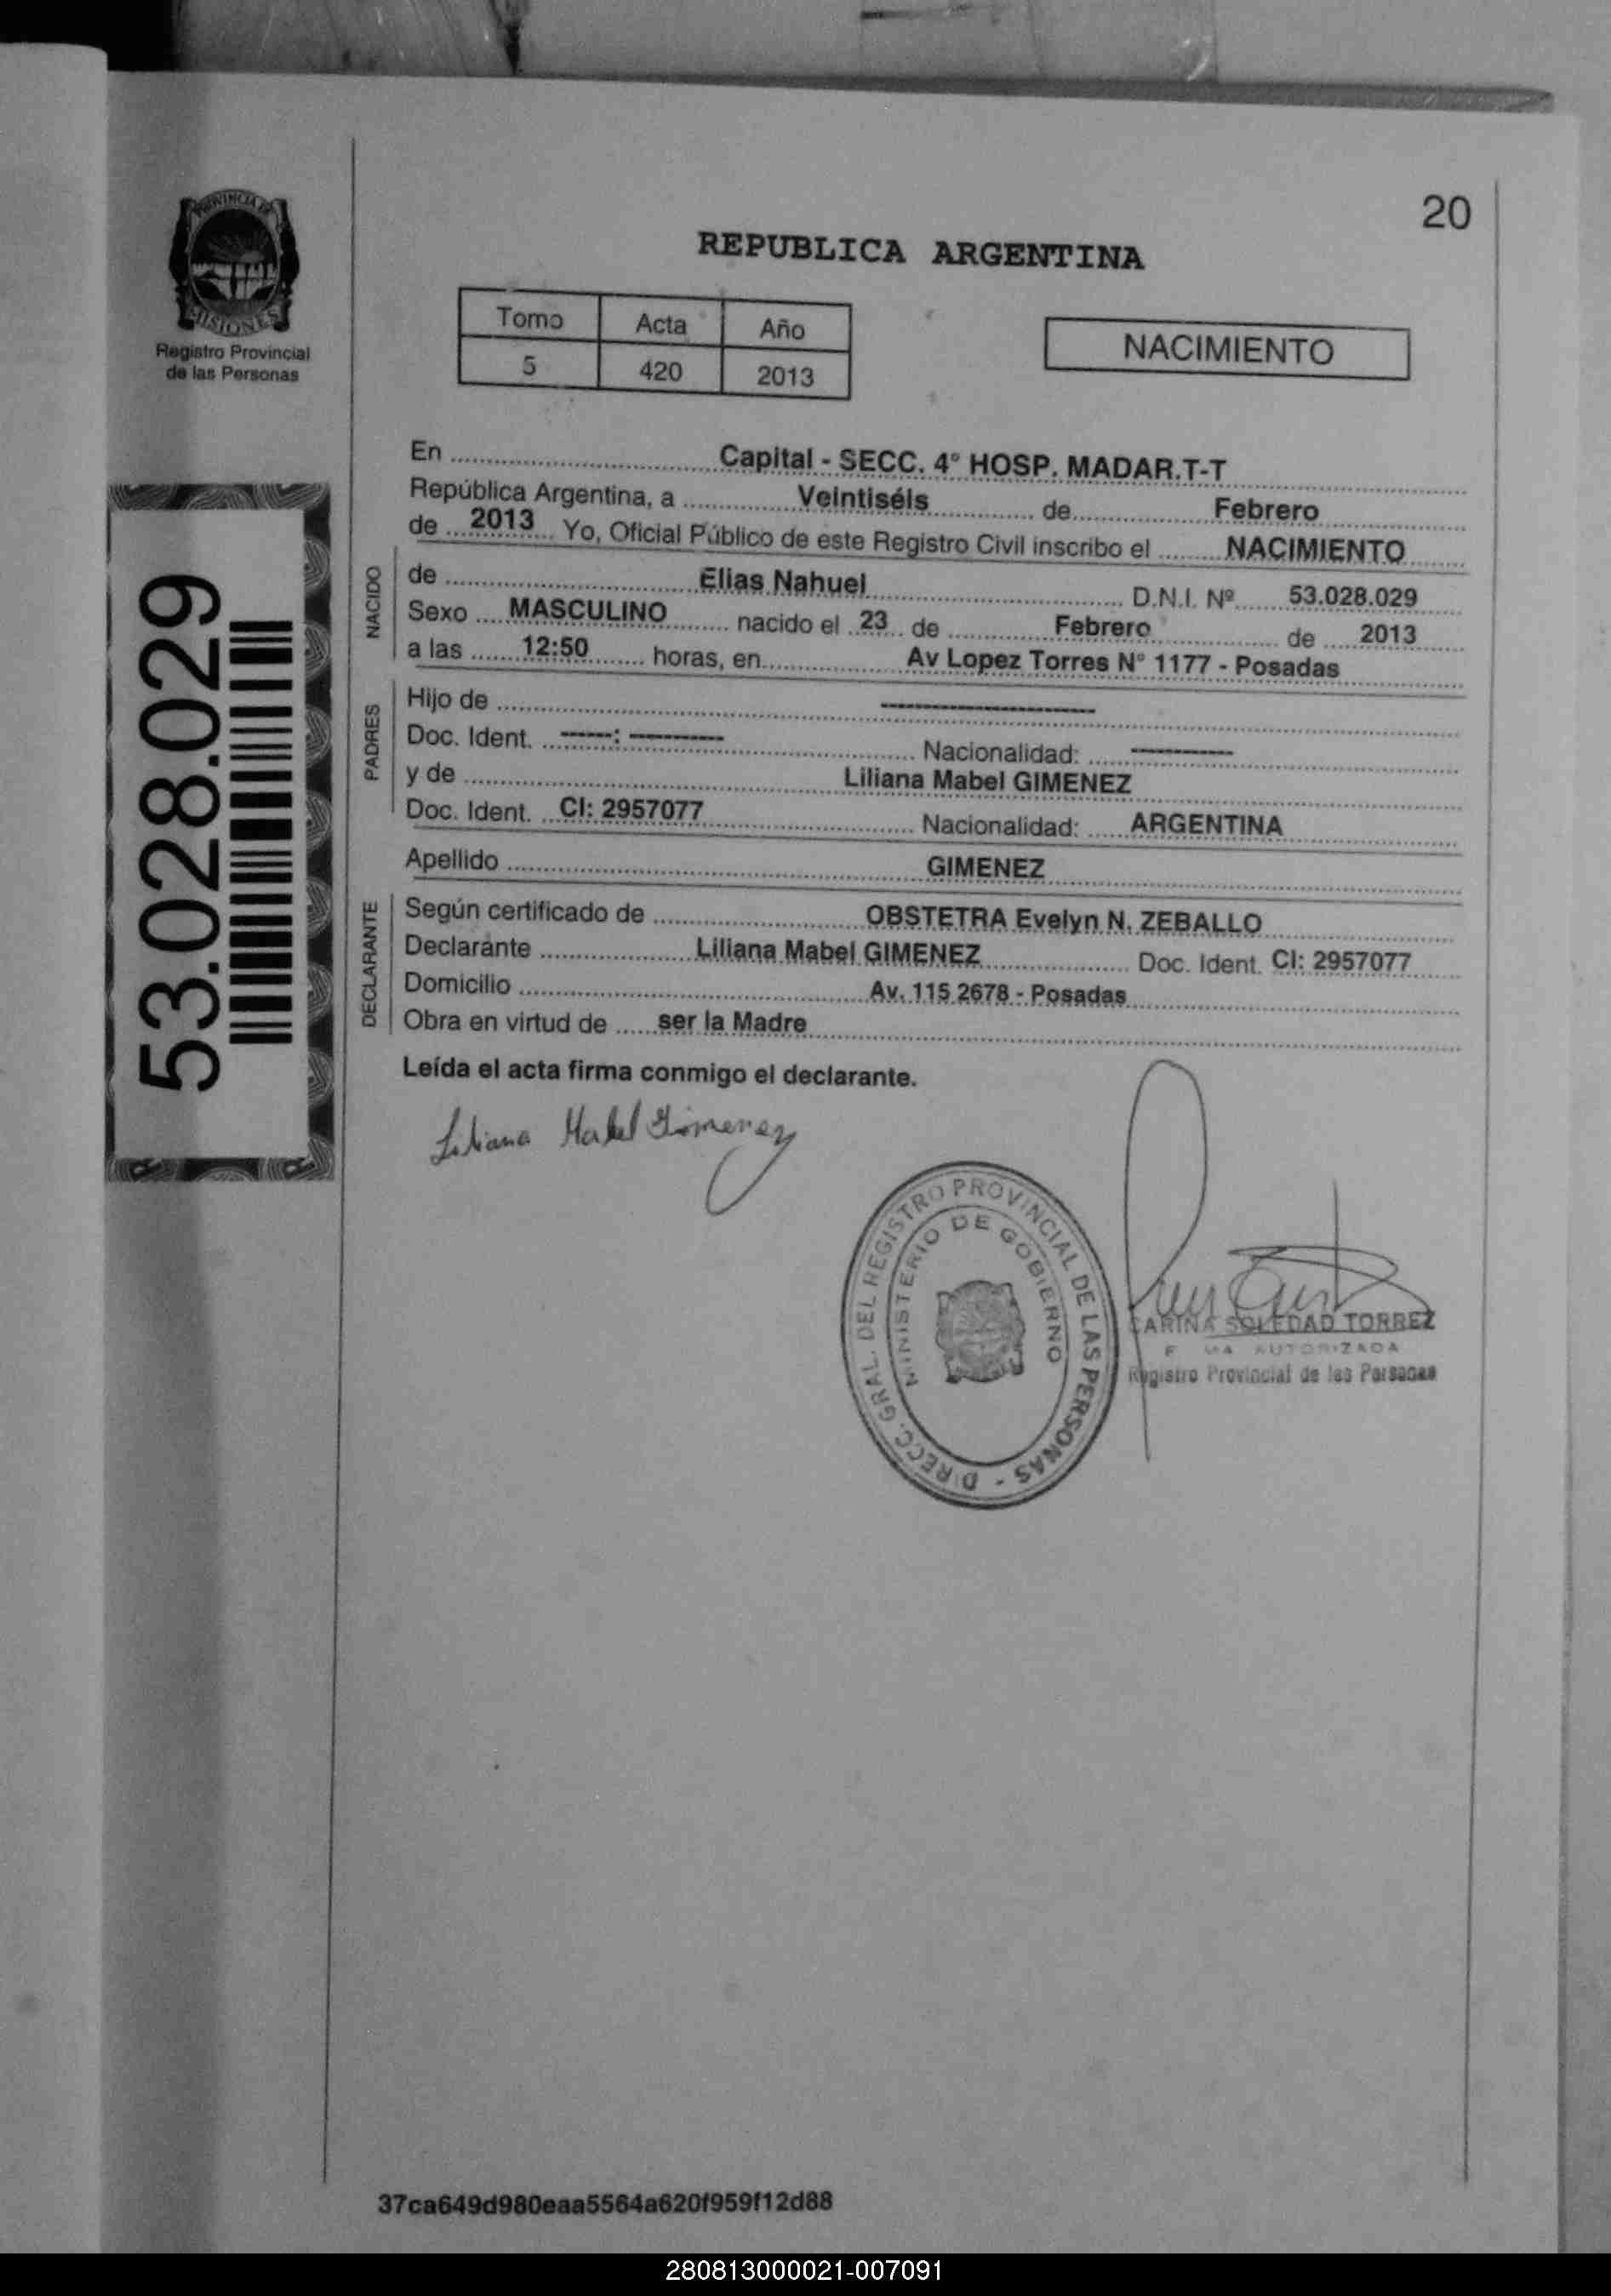 20
PROVINCIA DE
MISIONES
Registro Provincial
de las Personas
REPUBLICA ARGENTINA
Tomo Acta Año
5 420 2013
NACIMIENTO
En Capital - SECC. 4° HOSP. MADAR.T-T
República Argentina, a Veintiséis de Febrero
de 2013 Yo, Oficial Público de este Registro Civil inscribo el NACIMIENTO
NACIDO
de Elias Nahuel D.N.I. Nº 53.028.029
Sexo MASCULINO nacido el 23 de Febrero de 2013
a las 12:50 horas, en Av Lopez Torres N° 1177 - Posadas
PADRES
Hijo de --------------------
Doc. Ident. -----: --------- Nacionalidad: ----------
y de Liliana Mabel GIMENEZ
Doc. Ident. CI: 2957077 Nacionalidad: ARGENTINA
Apellido GIMENEZ
DECLARANTE
Según certificado de OBSTETRA Evelyn N. ZEBALLO
Declarante Liliana Mabel GIMENEZ Doc. Ident. CI: 2957077
Domicilio Av. 115 2678 - Posadas
Obra en virtud de ser la Madre
Leída el acta firma conmigo el declarante.
Liliana Mabel Gimenez
53.028.029
DIRECC. GRAL. DEL REGISTRO PROVINCIAL DE LAS PERSONAS -
MINISTERIO DE GOBIERNO
CARINA SOLEDAD TORREZ
AUTORIZADA
Registro Provincial de las Personas
37ca649d980eaa5564a620f959f12d88
280813000021-007091